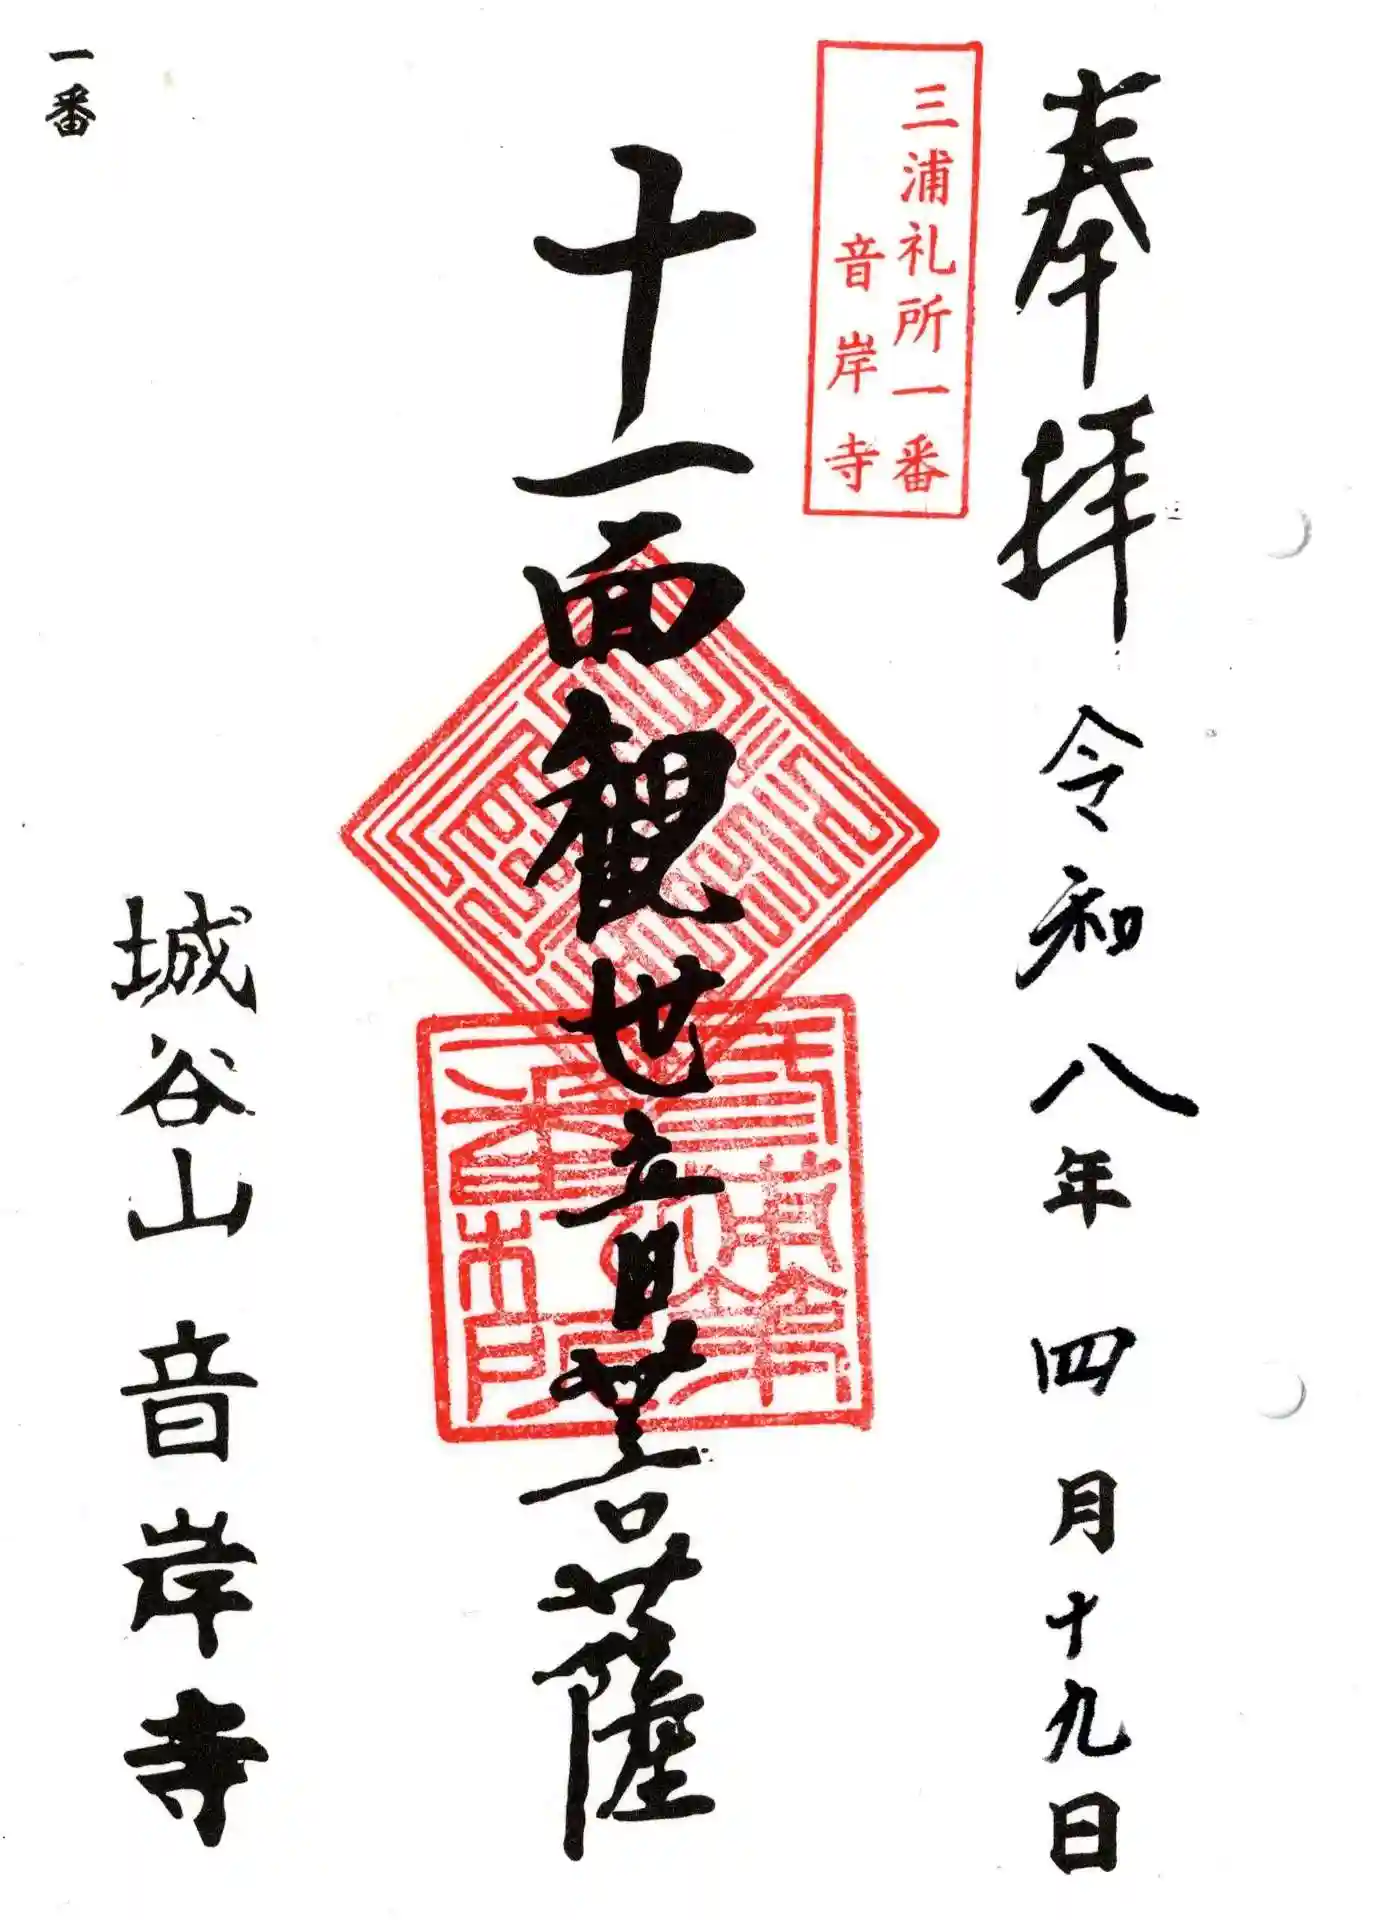 奉拝 令和八年四月十九日
三浦礼所一番
音岸寺
十一面観世音菩薩
城谷山 音岸寺
一番